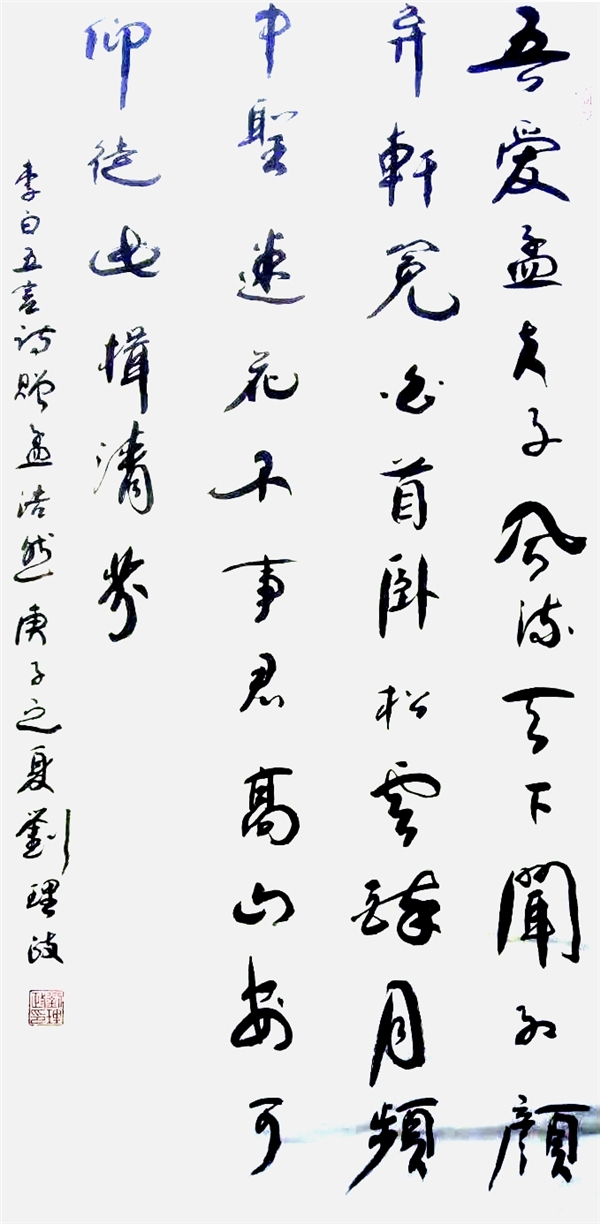 吾愛孟夫子風流天下聞紅顏
弃軒冕白首臥松雲醉月頻
中聖迷花不事君高山安可
仰徒此揖清芬
李白五言詩贈孟浩然庚子之夏劉理政